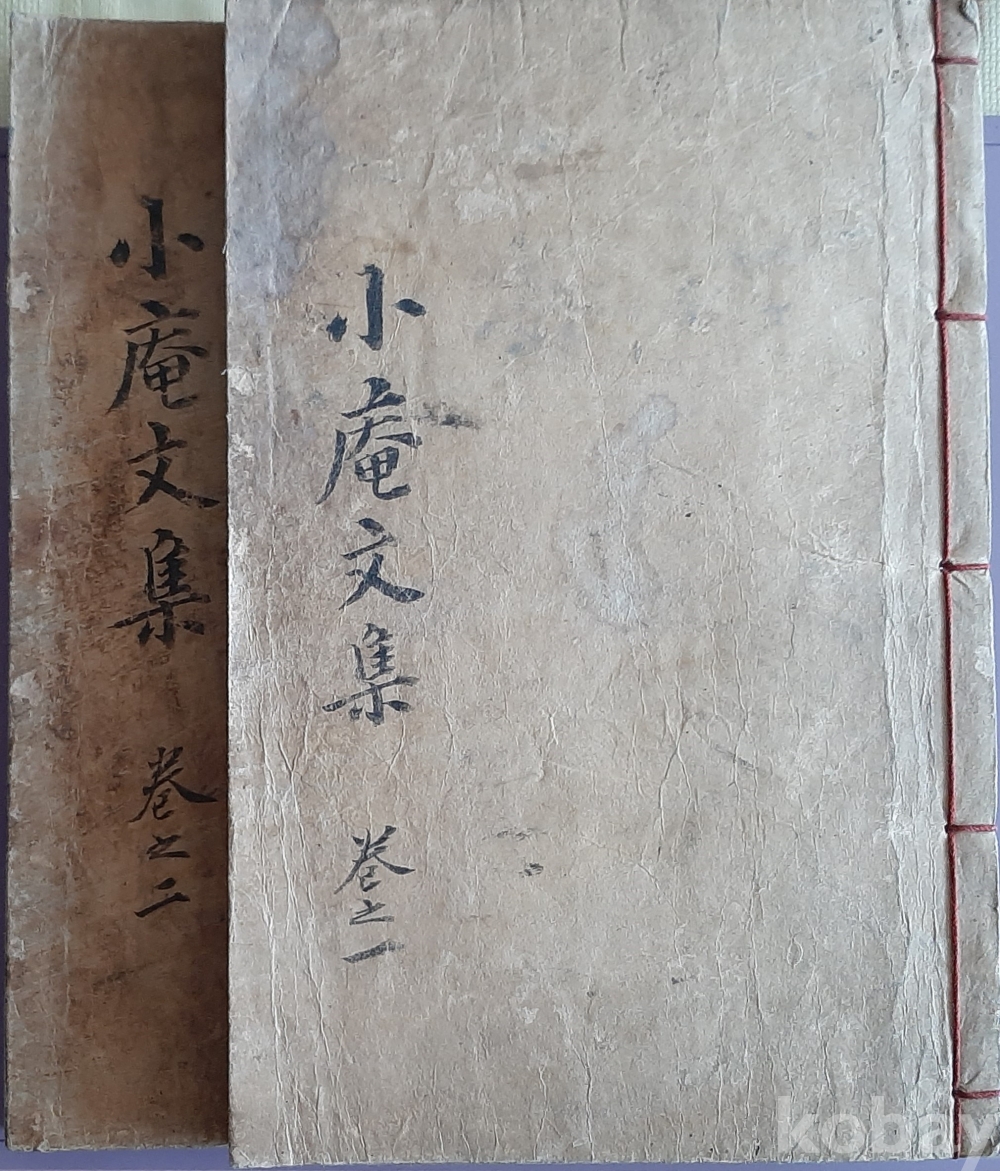 小庵文集 卷之一
小庵文集 卷之二
kobay